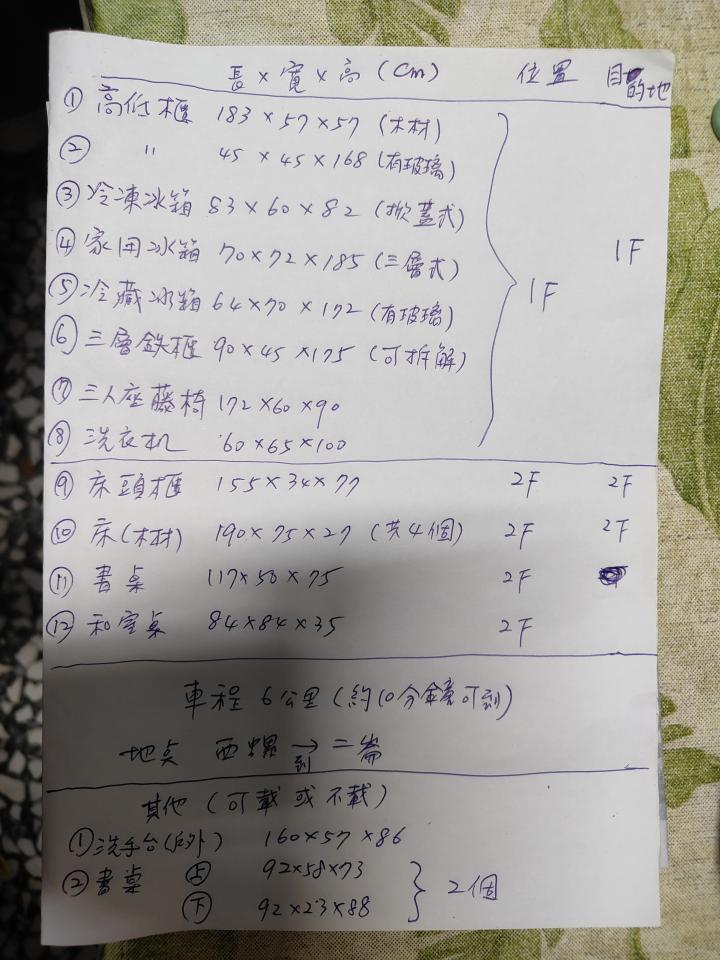 長×寬×高(cm) 位置 目的地
① 高低櫃 183×57×57 (木材)
② 〃 45×45×168 (有玻璃)
③ 冷凍冰箱 83×60×82 (掀蓋式)
④ 家用冰箱 70×72×185 (三層式) 1F
⑤ 冷藏冰箱 64×70×172 (有玻璃) 1F
⑥ 三層鉄櫃 90×45×175 (可拆解)
⑦ 三人座藤椅 172×60×90
⑧ 洗衣机 60×65×100
⑨ 床頭櫃 155×34×77 2F 2F
⑩ 床(木材) 190×75×27 (共4個) 2F 2F
⑪ 書桌 117×50×75 2F
⑫ 和室桌 84×84×35 2F
車程 6公里(約10分鐘可到)
地点 西螺 →到 二崙
其他(可載或不載)
① 洗手台(戶外) 160×57×86
② 書桌 92×58×73
下 92×23×88 } 2個